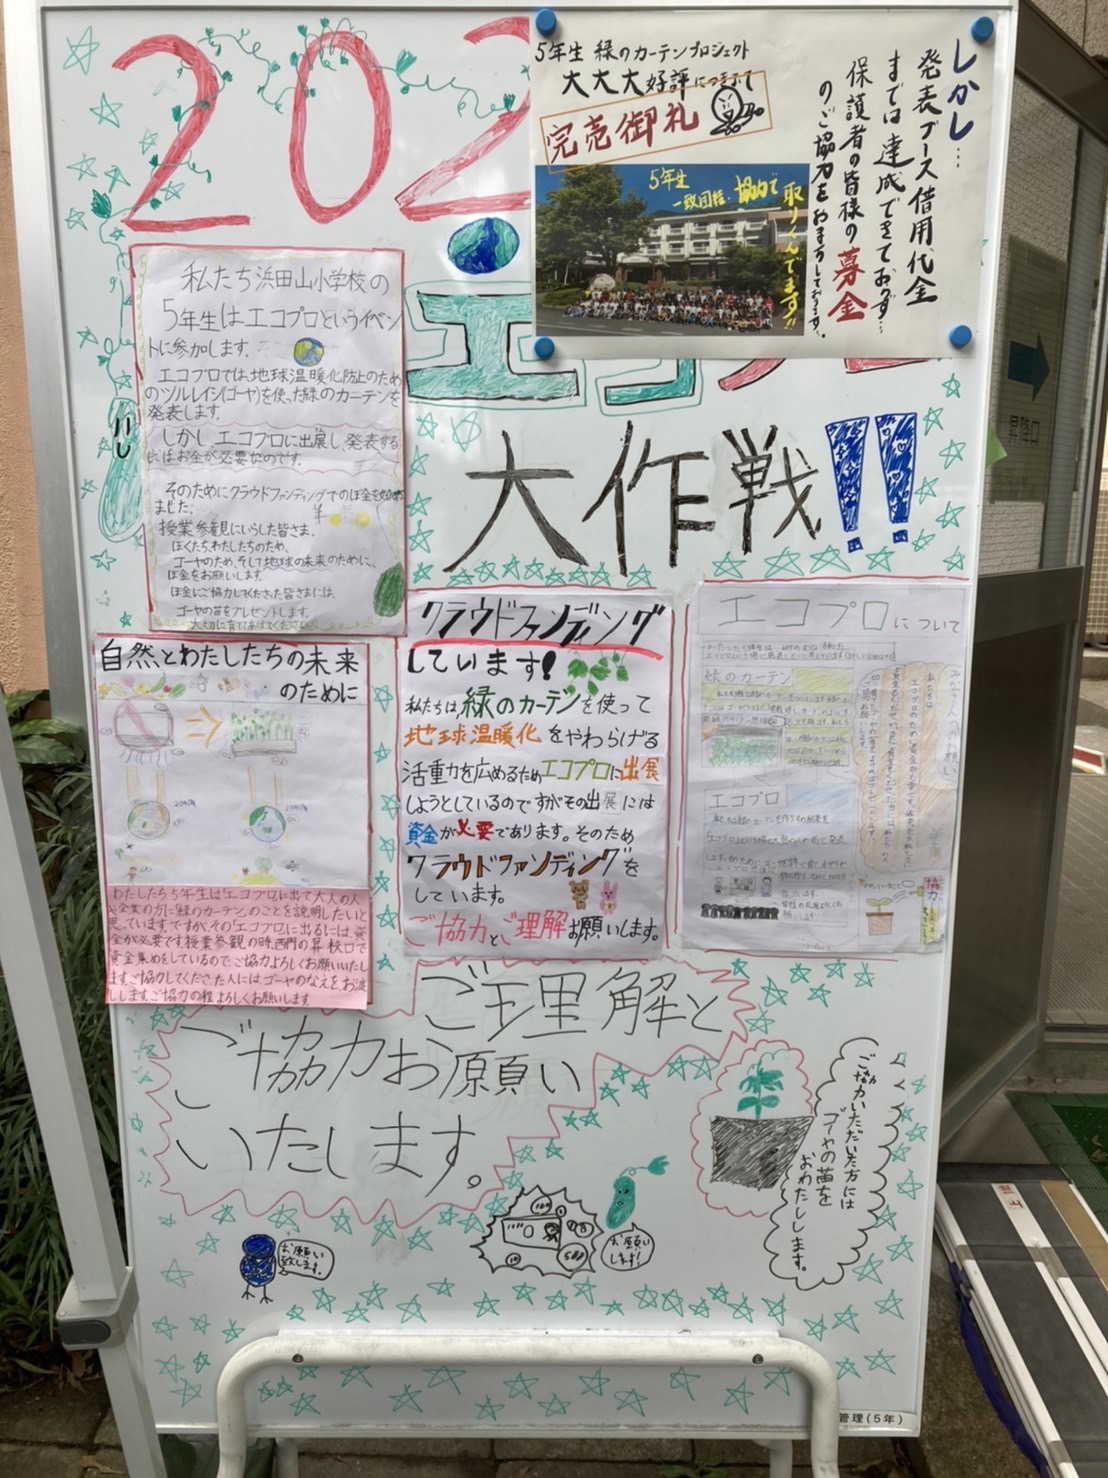 202
エコプロ
大作戦!!
5年生 緑のカーテンプロジェクト
大大大好評につきまして
完売御礼
5年生
一致団結、協力で
取りくんでます!!
しかし…
発表ブース借用代金
までは達成できておらず…
保護者の皆様の募金
のご協力をおまちしております。
私たち浜田山小学校の
5年生はエコプロというイベン
トに参加します。
エコプロでは、地球温暖化防止のため
のツルレイシ(ゴーヤ)を使った緑のカーテンを
発表します。
しかしエコプロに出展し、発表する
にはお金が必要なのです。
そのためにクラウドファンディングでのぼ金を始め
ました。
授業参観にいらした皆さま、
ぼくたちわたしたちのため、
ゴーヤのため、そして地球の未来のために、
ぼ金をお願いします。
ぼ金にご協力してくださった皆さまには、
ゴーヤの苗をプレゼントします。
大切に育ててあげてください。
自然とわたしたちの未来
のために
わたしたち5年生は「エコプロ」に出て大人の人
や企業の方に「緑のカーテン」のことを説明したいと
思っています。ですが、その「エコプロ」に出るには、資
金が必要です。授業参観の時、西門の昇校口で
資金集めをしているので、ご協力よろしくお願いいたし
ます。ご協力してくださった人には、ゴーヤのなえをお渡
しします。ご協力の程よろしくお願いします。
クラウドファンディング
しています!
私たちは、緑のカーテンを使って
地球温暖化をやわらげる
活動を広めるためエコプロに出展
しようとしているのですがその出展には
資金が必要であります。そのため
クラウドファンディングを
しています。
ご協力とご理解お願いします。
エコプロについて
緑のカーテン
エコプロ
協力
ご理解と
ご協力お願い
いたします。
お願い
致します。
お願い
します!
ご協力いただいた方には
ゴーヤの苗を
おわたしします。
昇降口
管理(5年)